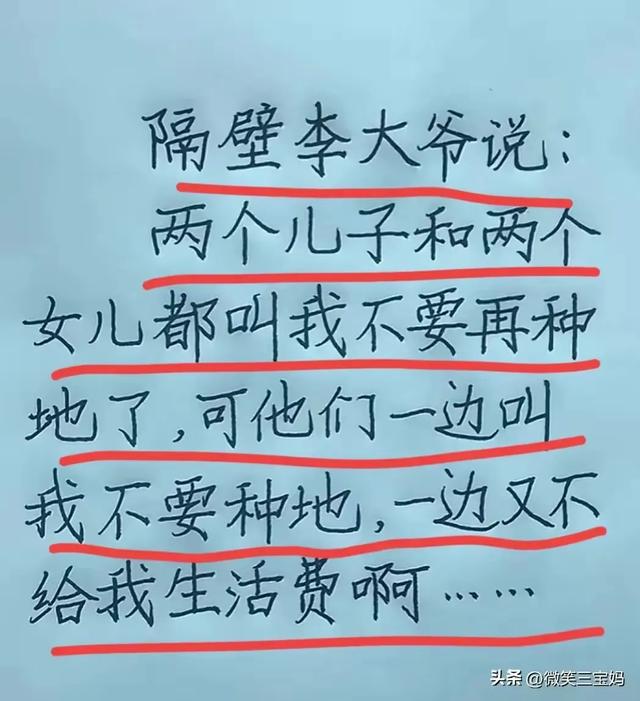 隔壁李大爷说：
两个儿子和两个
女儿都叫我不要再种
地了，可他们一边叫
我不要种地，一边又不
给我生活费啊……
头条 @微笑三宝妈